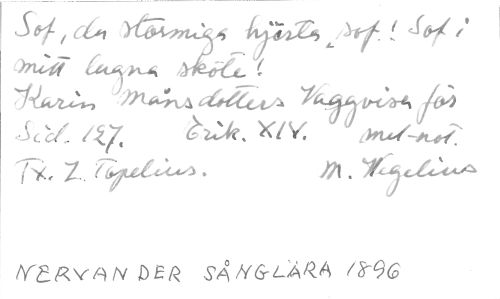 Sof, du stormiga hjärta, sof! Sof i
mitt lugna sköte!
Karin Månsdotters Vaggvisa för
Sid. 127. Erik. XIV. mel-not.
Tx. Z. Topelius. M. Wegelius
NERVANDER SÅNGLÄRA 1896